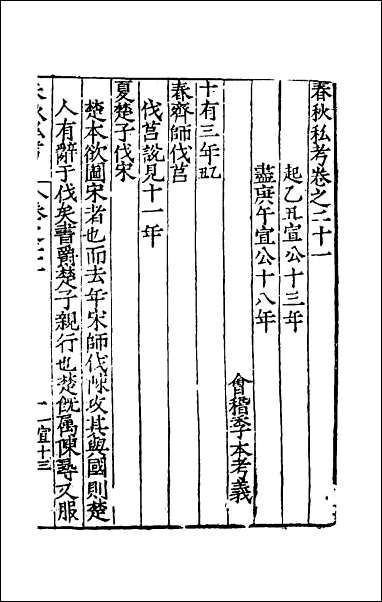 春秋私考卷之二十一
起乙丑宣公十三年
盡庚午宣公十八年
會稽季本考義
十有三年乙丑
春齊師伐莒
伐莒說見十一年
夏楚子伐宋
楚本欲圖宋者也而去年宋師伐陳攻其與國則楚
人有辭于伐矣書爵楚子親行也楚旣屬陳尋又服
宣十三